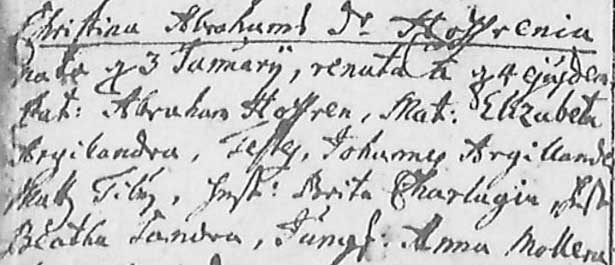 Christina Abrahams Dr Hoffrenia
nata d 3 Januarij, renata d 4 ejusdem
Pat: Abraham Hoffren, Mat: Elizabeta
Argilandra, Testes, Johannes Argillander
Matz Tilus, Hust: Brita Charlagia, Hust
Beatha Tandra, Jungf: Anna Mollera